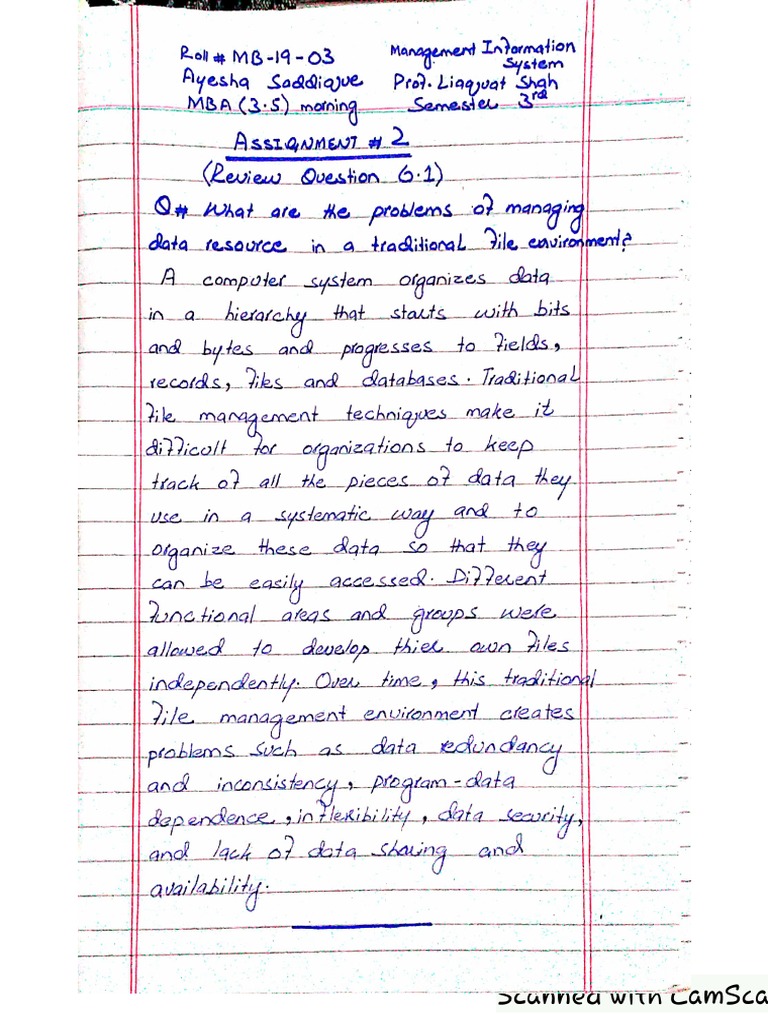 Roll # MB-19-03 Management Information System
Ayesha Saddique Prof. Liaquat Shah
MBA (3.5) morning Semester 3rd
ASSIGNMENT # 2
(Review Question 6.1)
Q# What are the problems of managing
data resource in a traditional file environment?
A computer system organizes data
in a hierarchy that starts with bits
and bytes and progresses to fields,
records, files and databases. Traditional
file management techniques make it
difficult for organizations to keep
track of all the pieces of data they
use in a systematic way and to
organize these data so that they
can be easily accessed. Different
functional areas and groups were
allowed to develop thier own files
independently. Over time, this traditional
file management environment creates
problems such as data redundancy
and inconsistency, program-data
dependence, inflexibility, data security,
and lack of data sharing and
availability.
Scanned with CamSca